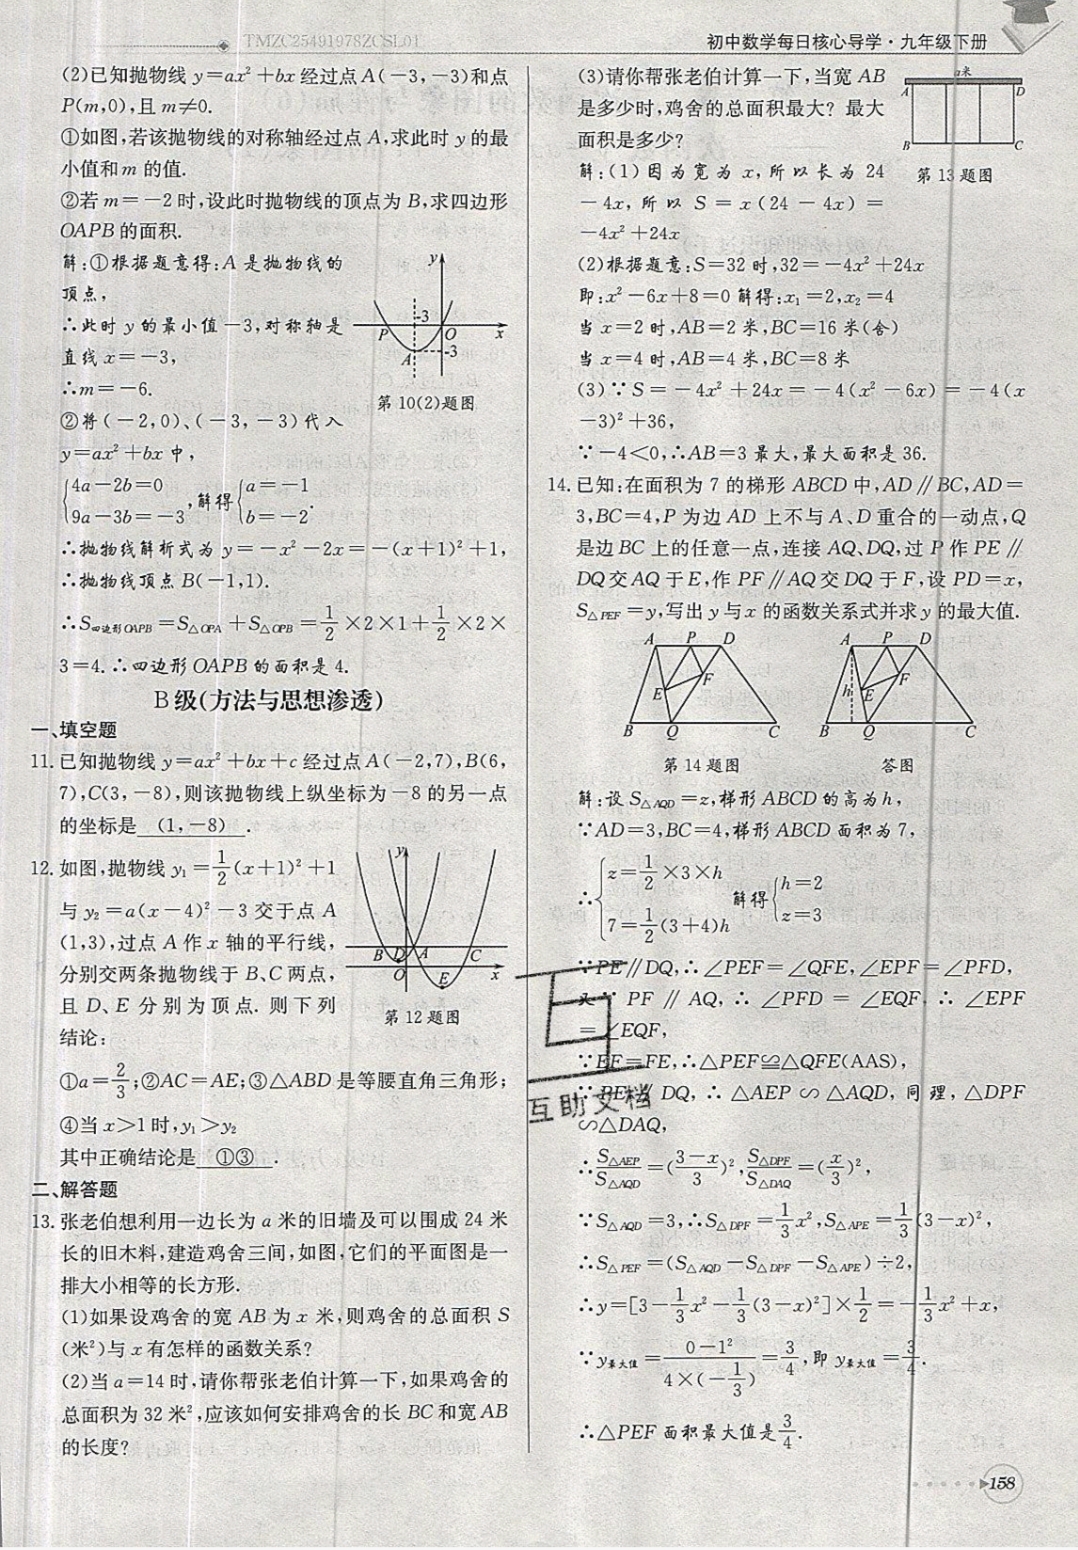 TMZC25491978ZCSL01
初中数学每日核心导学·九年级下册
(2)已知抛物线 y=ax²+bx 经过点 A(-3,-3)和点
P(m,0),且 m≠0.
①如图,若该抛物线的对称轴经过点 A,求此时 y 的最
小值和 m 的值.
②若 m=-2 时,设此时抛物线的顶点为 B,求四边形
OAPB 的面积.
解:①根据题意得:A 是抛物线的
顶点,
∴此时 y 的最小值-3,对称轴是
直线 x=-3,
∴m=-6.
②将(-2,0)、(-3,-3)代入
y=ax²+bx 中,
y
-3
P
O
x
A
-3
第 10(2)题图
{4a-2b=0 9a-3b=-3,解得{a=-1 b=-2.
∴抛物线解析式为 y=-x²-2x=-(x+1)²+1,
∴抛物线顶点 B(-1,1).
∴S四边形OAPB=S△OPA+S△OPB=1/2×2×1+1/2×2×
3=4.∴四边形 OAPB 的面积是 4.
B级(方法与思想渗透)
一、填空题
11.已知抛物线 y=ax²+bx+c 经过点 A(-2,7),B(6,
7),C(3,-8),则该抛物线上纵坐标为-8 的另一点
的坐标是 (1,-8) .
12.如图,抛物线 y₁=1/2(x+1)²+1
与 y₂=a(x-4)²-3 交于点 A
(1,3),过点 A 作 x 轴的平行线,
分别交两条抛物线于 B、C 两点,
且 D、E 分别为顶点. 则下列
结论:
y
B
D
A
C
O
E
x
第 12 题图
①a=2/3;②AC=AE;③△ABD 是等腰直角三角形;
④当 x>1 时,y₁>y₂
其中正确结论是 ①③ .
二、解答题
13.张老伯想利用一边长为 a 米的旧墙及可以围成 24 米
长的旧木料,建造鸡舍三间,如图,它们的平面图是一
排大小相等的长方形.
(1)如果设鸡舍的宽 AB 为 x 米,则鸡舍的总面积 S
(米²)与 x 有怎样的函数关系?
(2)当 a=14 时,请你帮张老伯计算一下,如果鸡舍的
总面积为 32 米²,应该如何安排鸡舍的长 BC 和宽 AB
的长度?
(3)请你帮张老伯计算一下,当宽 AB
是多少时,鸡舍的总面积最大? 最大
面积是多少?
a米
A
D
B
C
第 13 题图
解:(1)因为宽为 x,所以长为 24
-4x,所以 S=x(24-4x)=
-4x²+24x
(2)根据题意:S=32 时,32=-4x²+24x
即:x²-6x+8=0 解得:x₁=2,x₂=4
当 x=2 时,AB=2 米,BC=16 米(舍)
当 x=4 时,AB=4 米,BC=8 米
(3)∵S=-4x²+24x=-4(x²-6x)=-4(x
-3)²+36,
∵-4<0,∴AB=3 最大,最大面积是 36.
14.已知:在面积为 7 的梯形 ABCD 中,AD∥BC,AD=
3,BC=4,P 为边 AD 上不与 A、D 重合的一动点,Q
是边 BC 上的任意一点,连接 AQ、DQ,过 P 作 PE∥
DQ交AQ于E,作 PF∥AQ交 DQ于F,设 PD=x,
S△PEF=y,写出 y 与 x 的函数关系式并求 y 的最大值.
A
P
D
E
F
B
Q
C
第 14 题图
A
P
D
h
E
F
B
Q
C
答图
解:设 S△AQD=z,梯形 ABCD 的高为 h,
∵AD=3,BC=4,梯形 ABCD 面积为 7,
∴{z=1/2×3×h 7=1/2(3+4)h 解得{h=2 z=3
∵PE∥DQ,∴∠PEF=∠QFE,∠EPF=∠PFD,
又∵PF∥AQ,∴∠PFD=∠EQF,∴∠EPF
=∠EQF,
∵EF=FE,∴△PEF≌△QFE(AAS),
∵PE∥DQ,∴△AEP∽△AQD,同理,△DPF
∽△DAQ,
∴S△AEP/S△AQD=(3-x/3)²,S△DPF/S△DAQ=(x/3)²,
∵S△AQD=3,∴S△DPF=1/3x²,S△APE=1/3(3-x)²,
∴S△PEF=(S△AQD-S△DPF-S△APE)÷2,
∴y=[3-1/3x²-1/3(3-x)²]×1/2=-1/3x²+x,
∵y最大值=0-1²/4×(-1/3)=3/4,即 y最大值=3/4.
∴△PEF 面积最大值是3/4.
互助文档
158